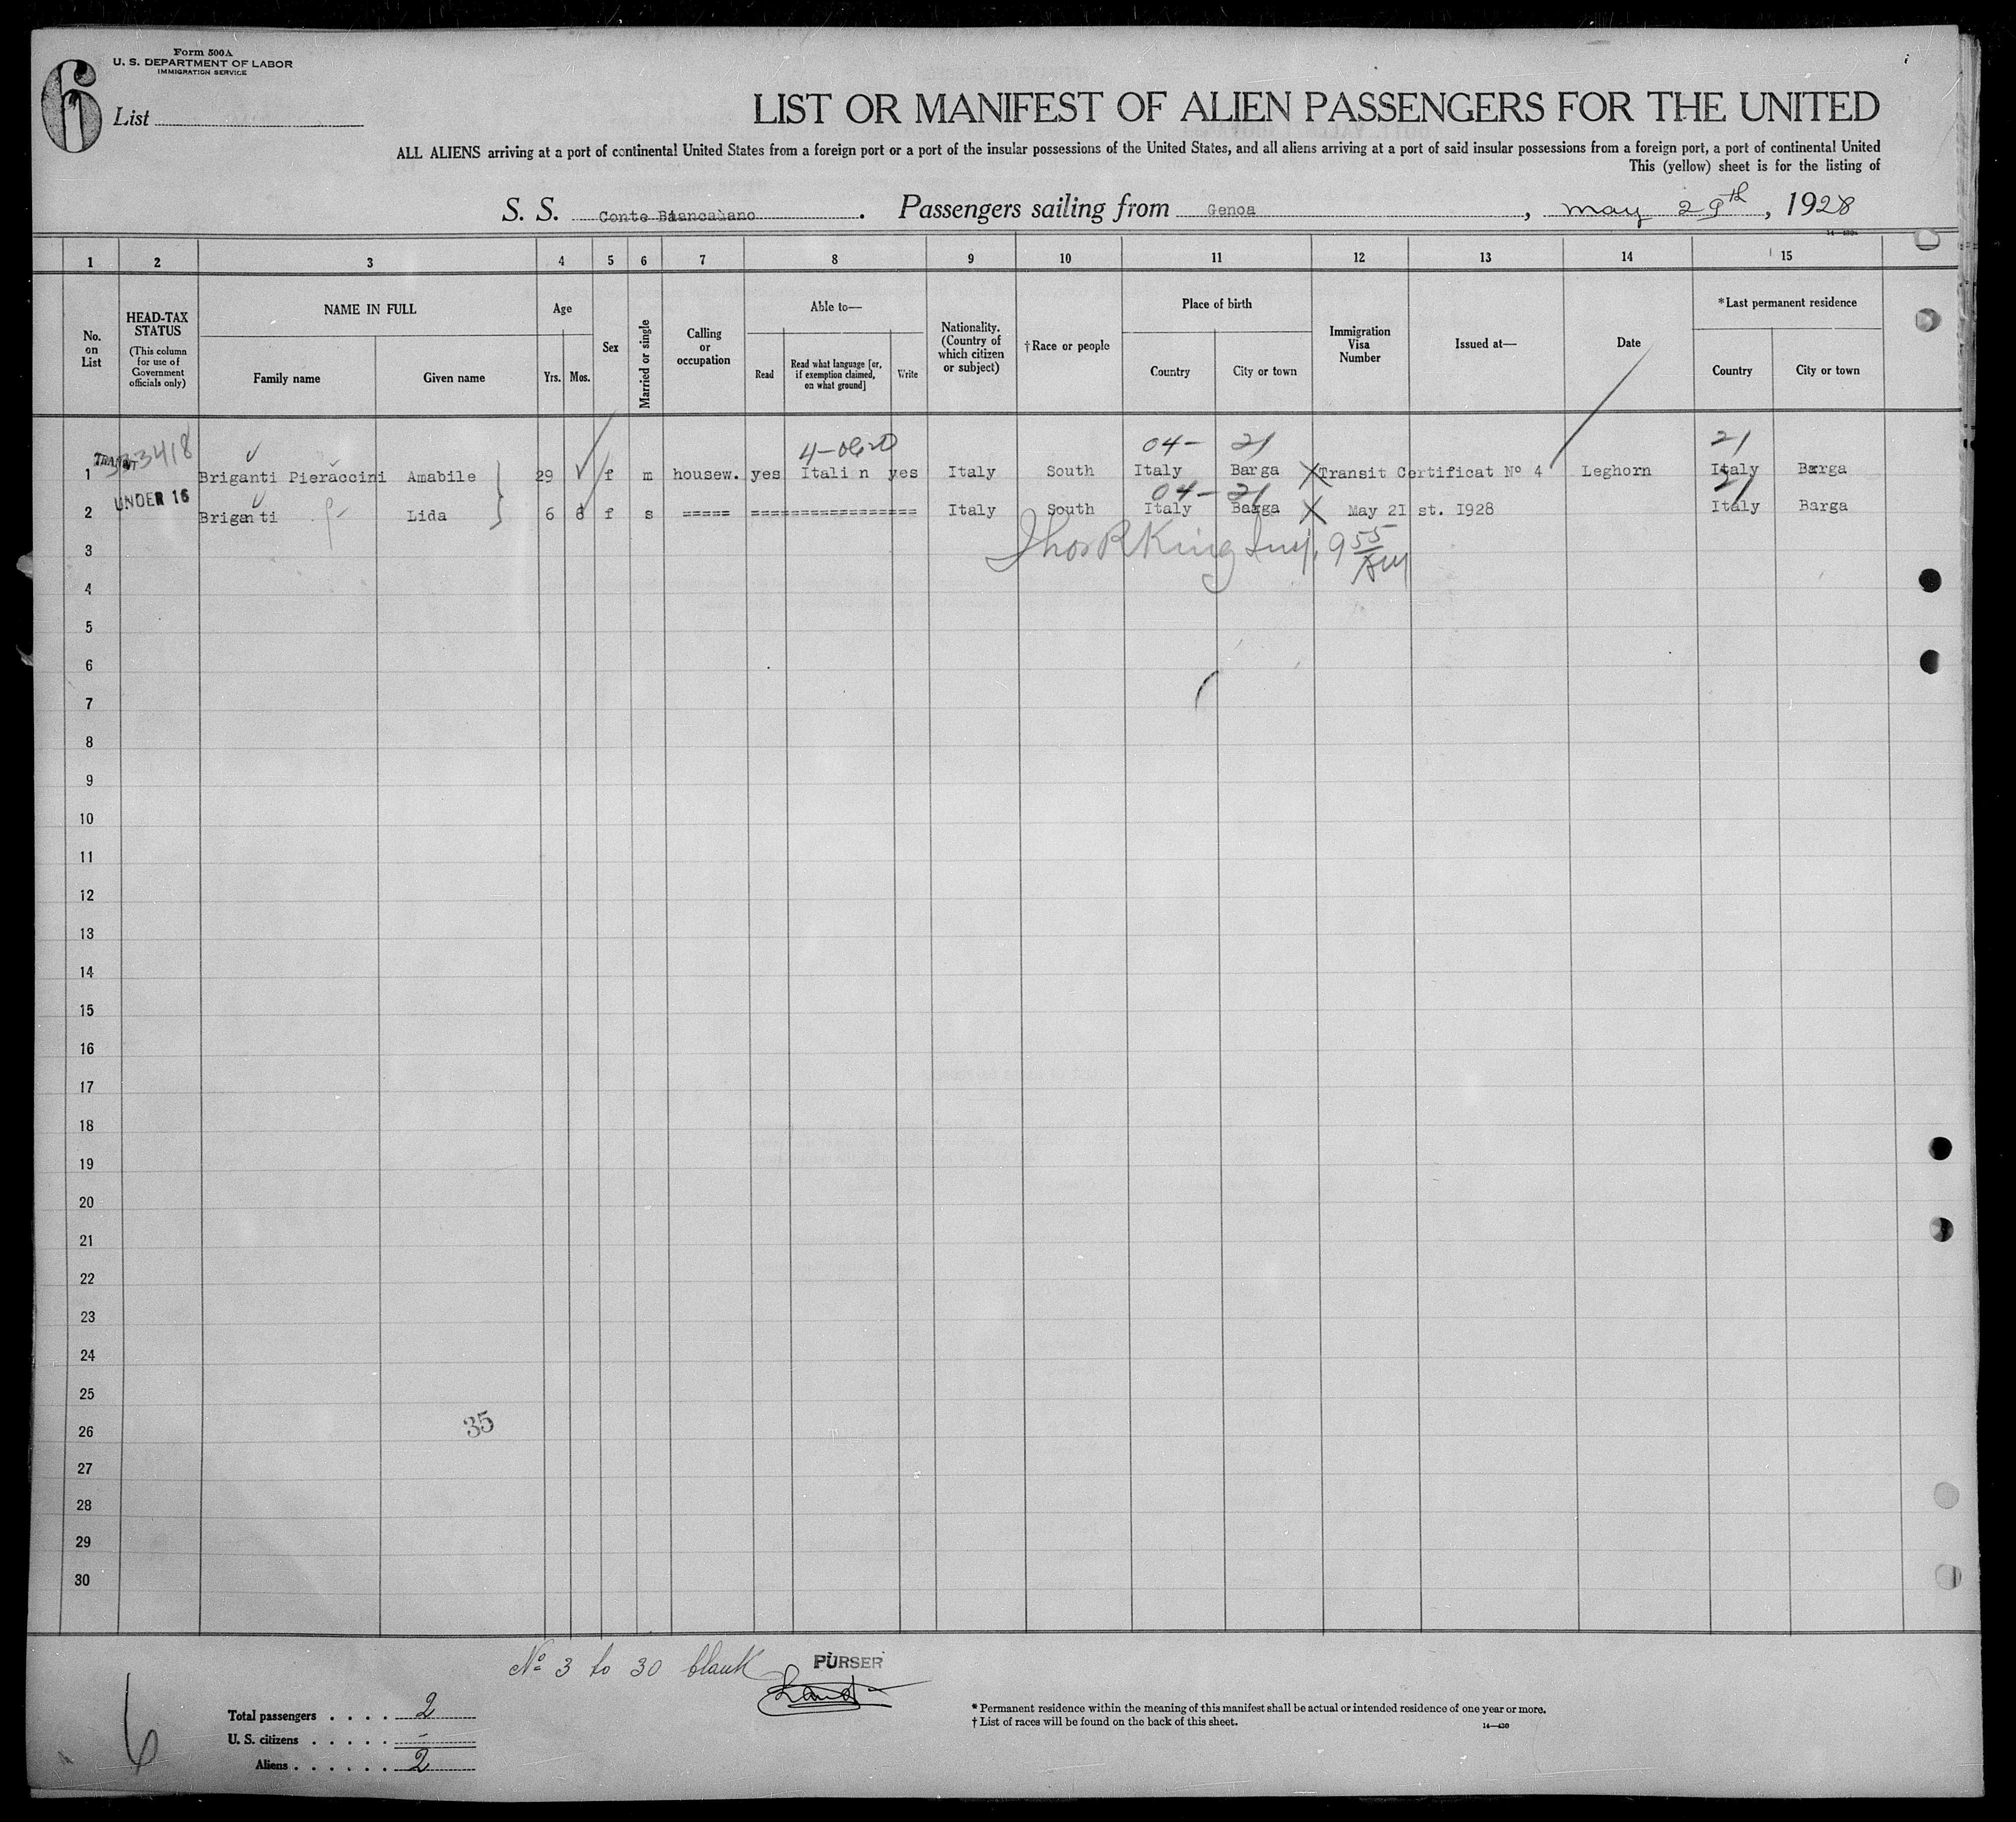 Form 500A
U. S. DEPARTMENT OF LABOR
IMMIGRATION SERVICE
6
List
LIST OR MANIFEST OF ALIEN PASSENGERS FOR THE UNITED
ALL ALIENS arriving at a port of continental United States from a foreign port or a port of the insular possessions of the United States, and all aliens arriving at a port of said insular possessions from a foreign port, a port of continental United
This (yellow) sheet is for the listing of
S. S. Conte Biancamano. Passengers sailing from Genoa, May 29th, 1928
1 2 3 4 5 6 7 8 9 10 11 12 13 14 15
No. on List
HEAD-TAX STATUS (This column for use of Government officials only)
NAME IN FULL
Family name
Given name
Age
Yrs.
Mos.
Sex
Married or single
Calling or occupation
Able to—
Read
Read what language [or, if exemption claimed, on what ground]
Write
Nationality. (Country of which citizen or subject)
†Race or people
Place of birth
Country
City or town
Immigration Visa Number
Issued at—
Date
*Last permanent residence
Country
City or town
04- 21 21
1 TRANSIT Briganti Pieraccini Amabile 29 f m housew. yes Itali n yes Italy South Italy Barga Transit Certificat Nº 4 Leghorn Italy Barga
04- 21 21
2 UNDER 16 Briganti Lida 6 6 f s ===== ================ Italy South Italy Barga May 21 st. 1928 Italy Barga
3 Thos R King Insp. 9 55 AM
4
5
6
7
8
9
10
11
12
13
14
15
16
17
18
19
20
21
22
23
24
25
26 35
27
28
29
30
Nº 3 to 30 blank
PURSER
6
Total passengers . . . . 2
U. S. citizens . . . . . -
Aliens . . . . . . 2
* Permanent residence within the meaning of this manifest shall be actual or intended residence of one year or more.
† List of races will be found on the back of this sheet.
14—430